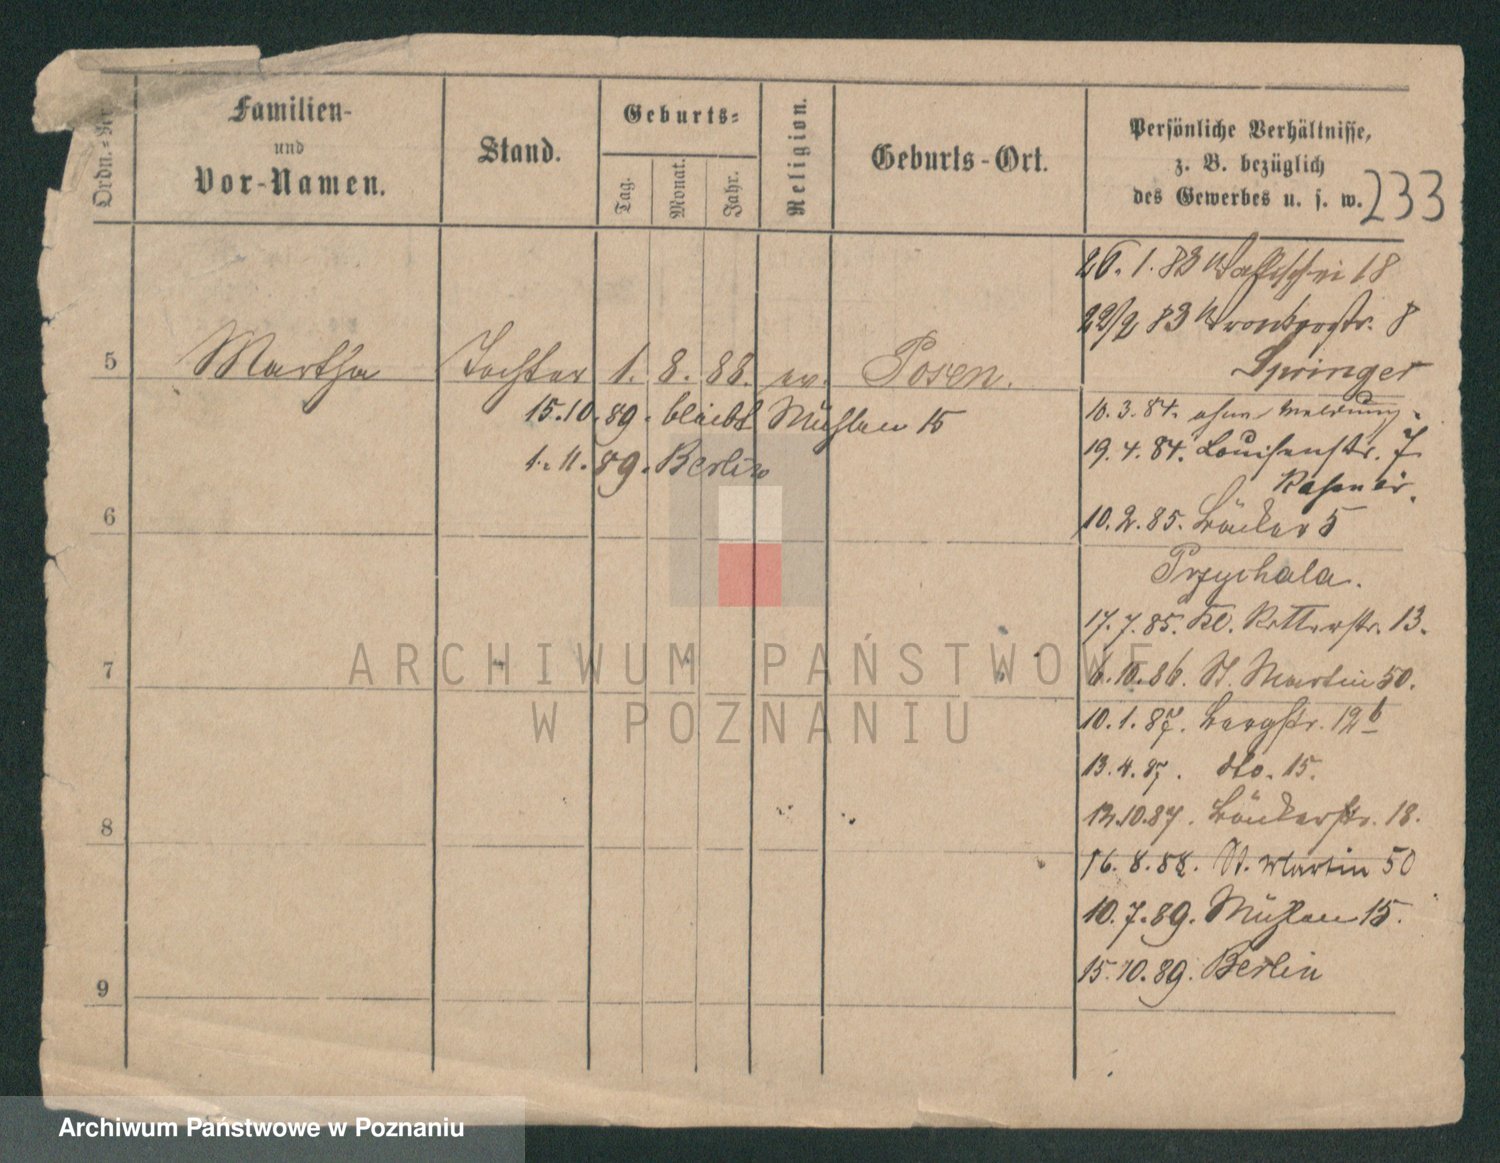 Ordn.-Nr.
Familien-
und
Vor-Namen.
Stand.
Geburts-
Tag.
Monat.
Jahr.
Religion.
Geburts-Ort.
Persönliche Verhältnisse,
z. B. bezüglich
des Gewerbes u. s. w.
233
26. 1. 83 Wallischei 18
22/2 83 Wronkerstr. 8
Springer
5 Martha Tochter 1. 8. 88. ev. Posen.
15.10.89. bleibt Mühlen 15
1. 11. 89. Berlin
10. 3. 84. ohne Meldung.
19. 4. 84. Louisenstr. 7
6
10. 2. 85. Bäcker 5
Przychala.
17. 7. 85. Kl. Ritterstr. 13.
7
6. 10. 86. St. Martin 50.
10. 1. 87. Bergstr. 12b
13. 4. 87. dto. 15.
8
12.10.87. Bäckerstr. 18.
16. 8. 88. St. Martin 50
10. 7. 89. Mühlen 15.
15. 10. 89. Berlin
9
ARCHIWUM PAŃSTWOWE
W POZNANIU
Archiwum Państwowe w Poznaniu